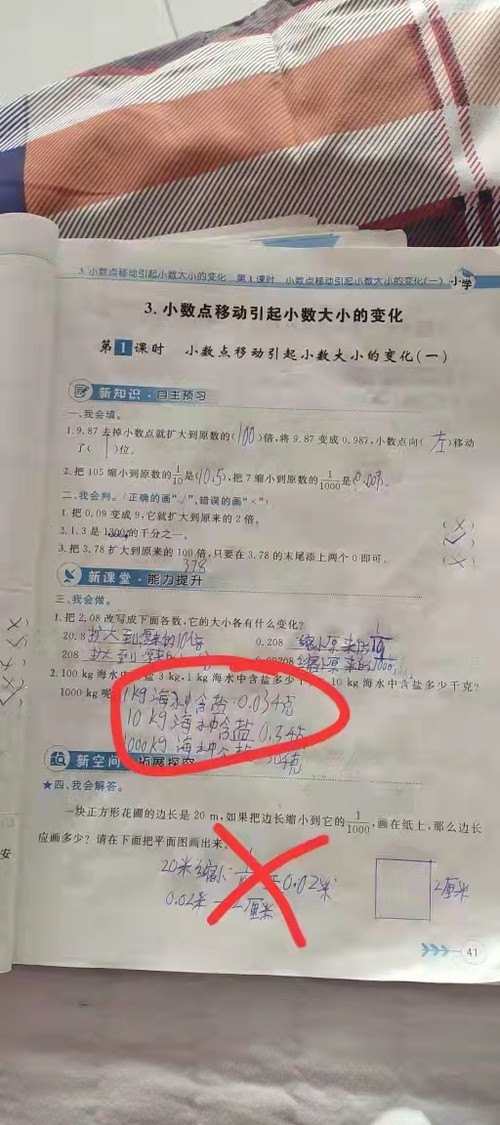 3.小数点移动引起小数大小的变化 第1课时 小数点移动引起小数大小的变化(一) 小学
3.小数点移动引起小数大小的变化
第1课时 小数点移动引起小数大小的变化(一)
新知识·自主预习
一、我会填。
1.9.87去掉小数点就扩大到原数的(100)倍,将9.87变成0.987,小数点向(左)移动
了(1)位。
2.把105缩小到原数的1/10是(10.5),把7缩小到原数的1/1000是(0.007)。
二、我会判。(正确的画"√",错误的画"×")
1.把0.09变成9,它就扩大到原来的2倍。 (×)
2.1.3是1300的千分之一。 (√)
3.把3.78扩大到原来的100倍,只要在3.78的末尾添上两个0即可。 (×)
378
新课堂·能力提升
三、我会做。
1.把2.08改写成下面各数,它的大小各有什么变化?
20.8 扩大到原来的10倍 0.208 缩小原来的1/10
208 扩大到原来的 0.00208 缩小原来的1/1000
2.100 kg海水中 盐3 kg.1 kg海水中含盐多少千 10 kg海水中含盐多少千克?
1000 kg呢
1kg海水中含盐0.034克
10kg海水中含盐0.34
1000kg海水中含盐 克
新空间 拓展探究
★四、我会解答。
一块正方形花圃的边长是20 m,如果把边长缩小到它的1/1000,画在纸上,那么边长
应画多少?请在下面把平面图画出来。
20米缩小 =0.02米
0.02米 2厘米
2厘米
41
安